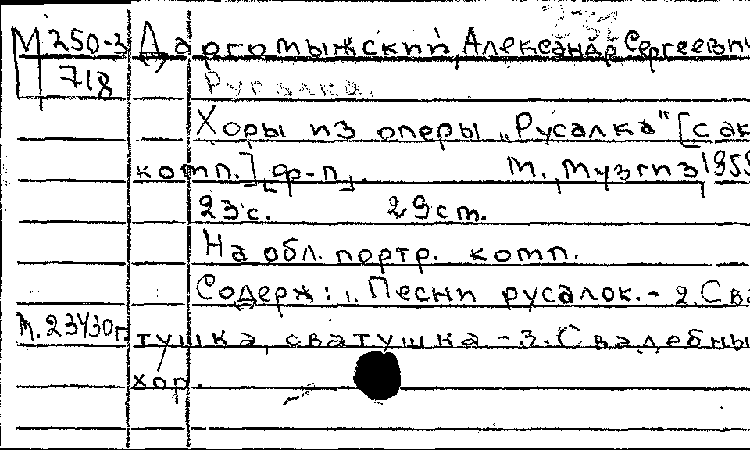 М 250-3 Даргомыжский, Александр Сергеевич
718 Русалка.
Хоры из оперы „Русалка" [сак
комп.] [ф-п]. М., Музгиз, 195
23 с. 29 см.
На обл. портр. комп.
Содерж: 1. Песни русалок. - 2. Сва
М. 23430г. тушка, сватушка - 3. Свадебны
хор.